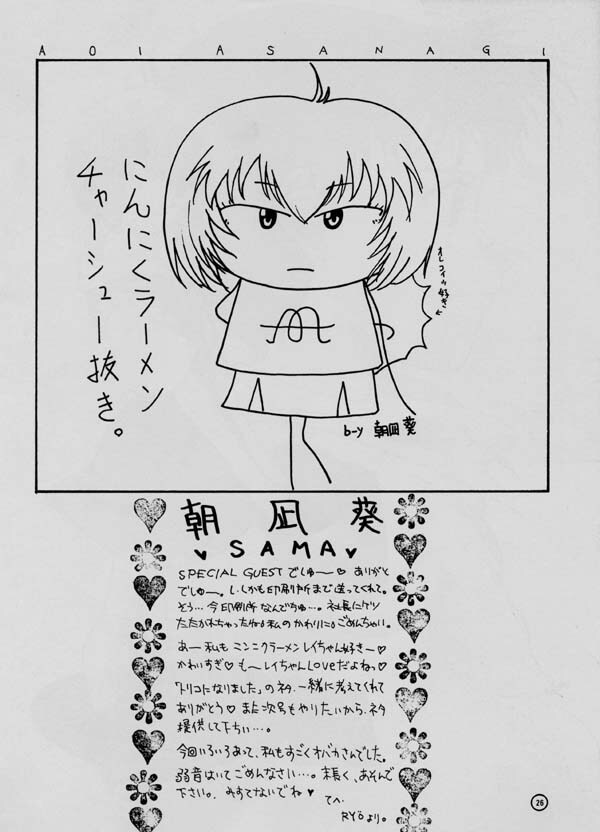 AOI ASANAGI
にんにくラーメン
チャーシュー抜き。
オレコイツ好き
by 朝凪 葵
朝 凪 葵
♥ SAMA ♥
SPECIAL GUESTでしゅ〜♡ ありがと
でしゅ〜。しかも印刷所まで送ってくれて。
そう…今印刷所なんでちゅ…。社長にケツ
たたかれちゃったね♂私のかわりに♂ごめんちゃい。
あー私もニンニクラーメンレイちゃん好き〜♡
かわいすぎ♡も〜レイちゃんLoveだよねっ♡
「トリコになりました」のネタ、一緒に考えてくれて
ありがとう♡また次号もやりたいから、ネタ
提供して下ちい…。
今回いろいろあって、私もすごくオバカさんでした。
弱音はいてごめんなさい…。末長く、あそんで
下さい。みすてないでね♥
てへ
RYÖより。
26